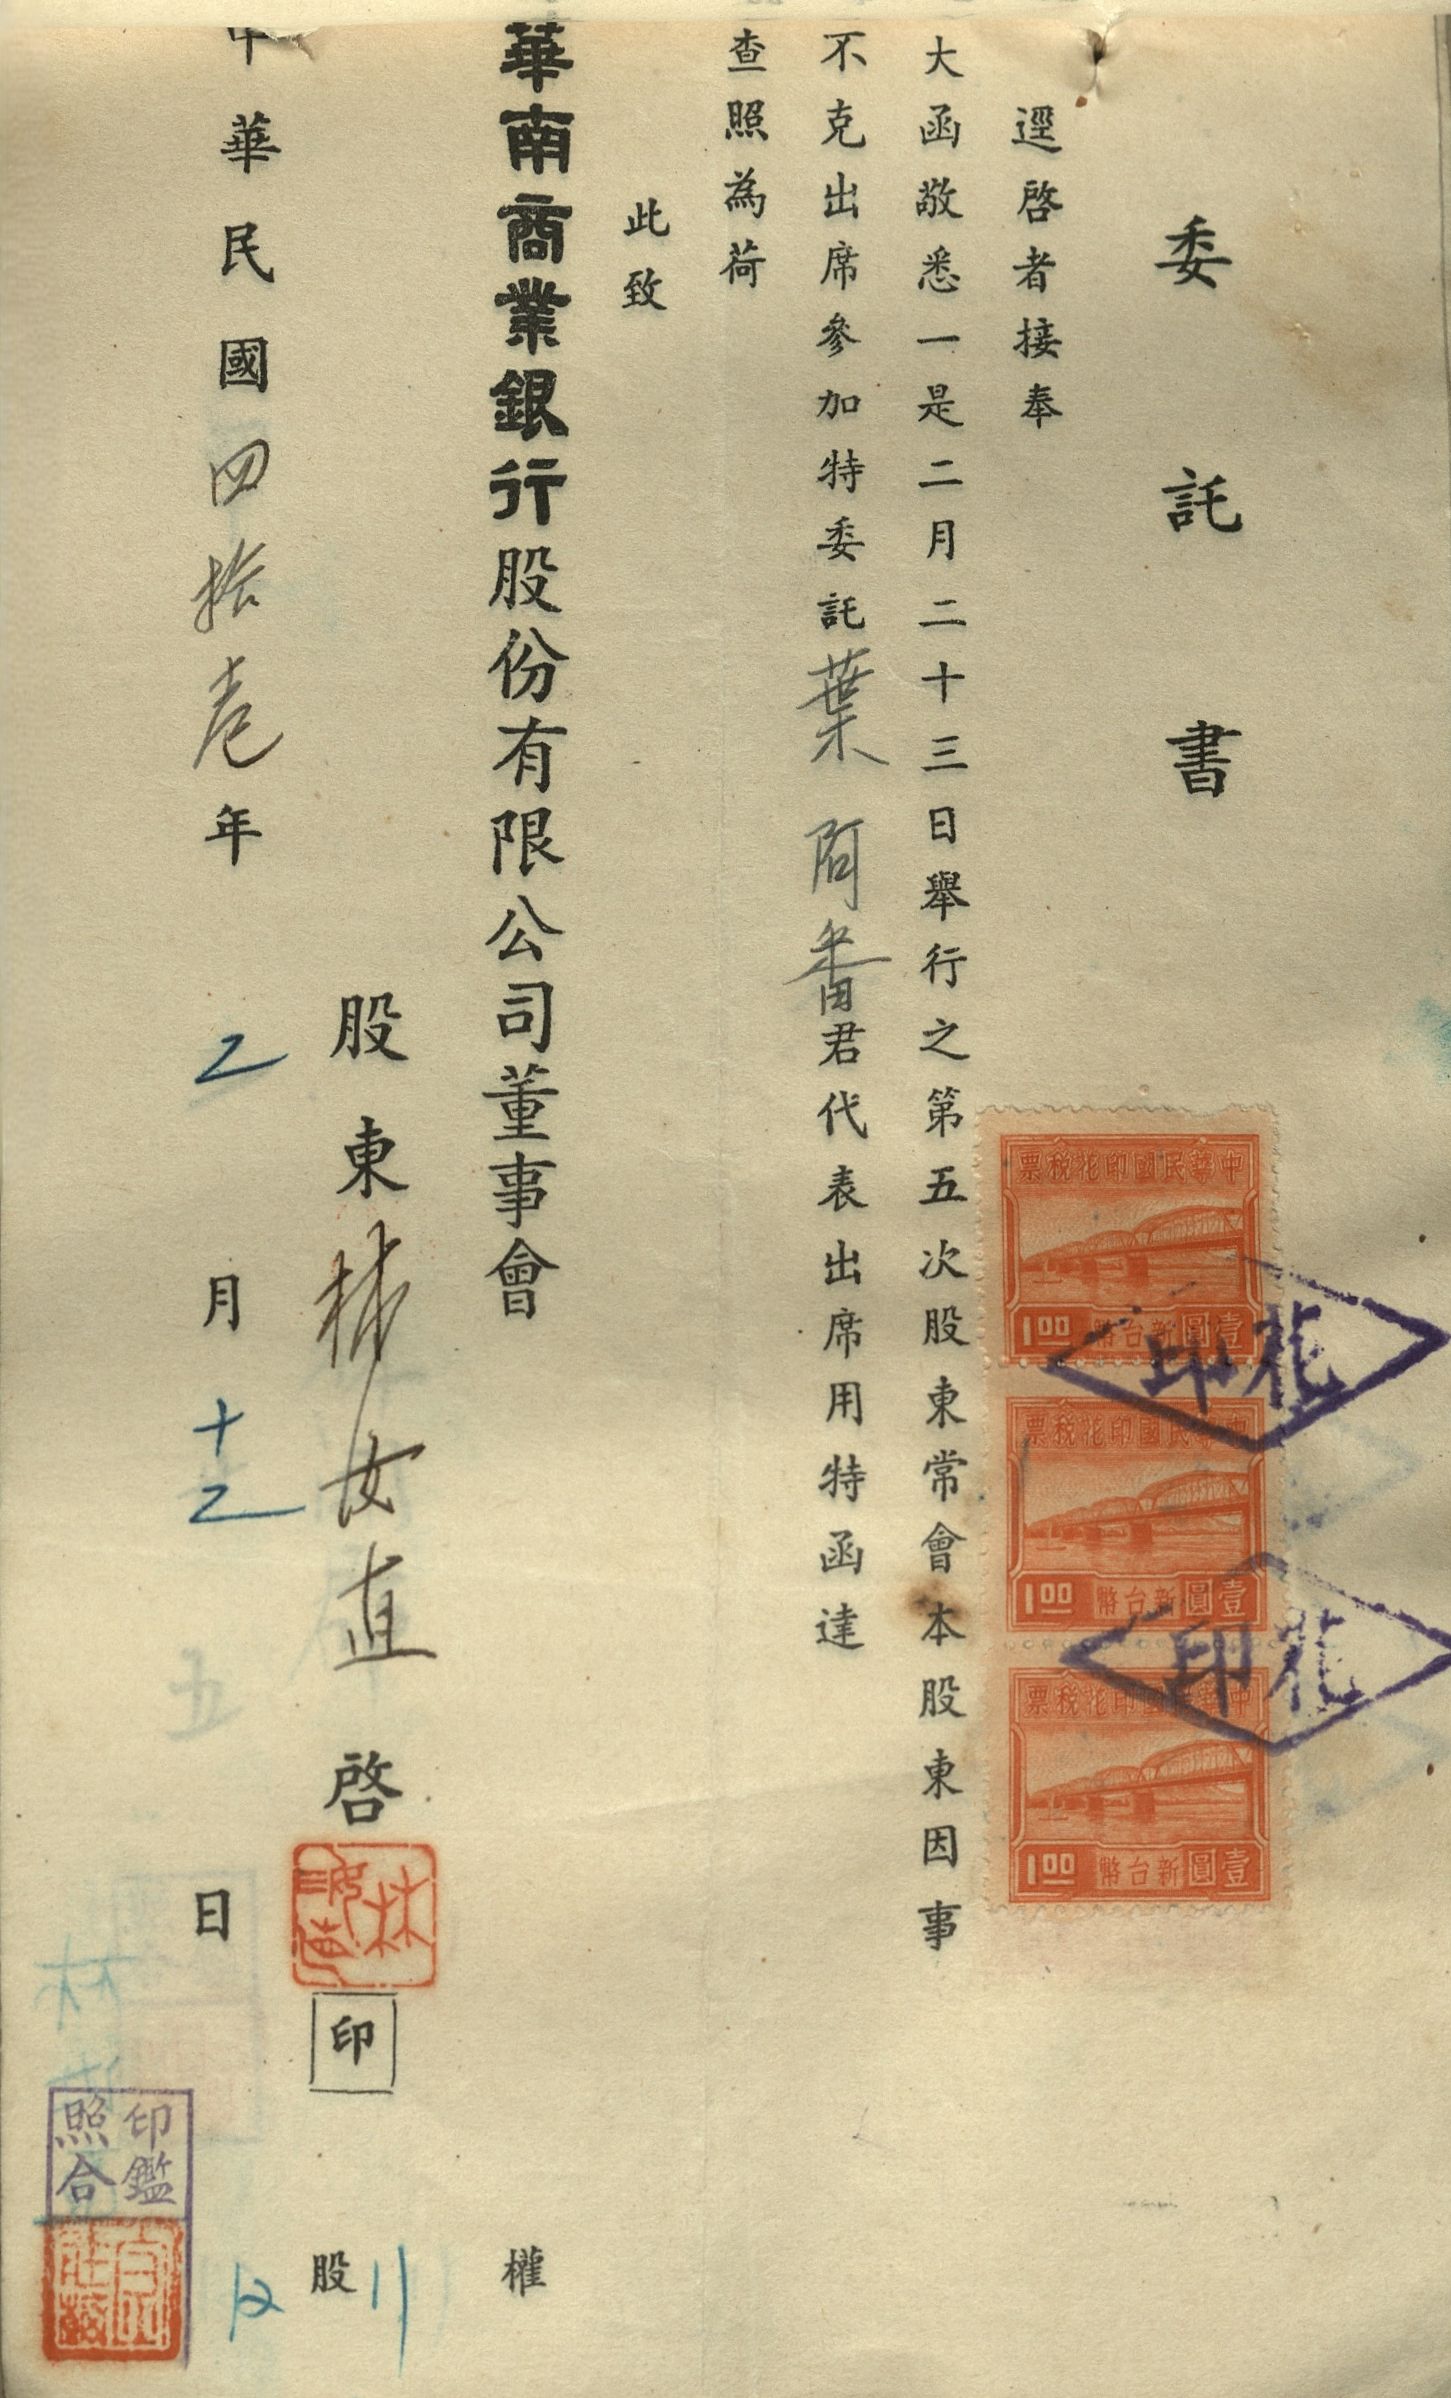 委託書
逕啓者接奉
大函敬悉一是二月二十三日舉行之第五次股東常會本股東因事
不克出席參加特委託葉阿番君代表出席用特函達
查照為荷
此致
華南商業銀行股份有限公司董事會
股東林女直啓
印
中華民國四拾壱年乙月十乙日
權
股
12
中華民國印花稅票
1.00 新台幣壹圓
中華民國印花稅票
1.00 新台幣壹圓
中華民國印花稅票
1.00 新台幣壹圓
印花
印花
印鑑
照合